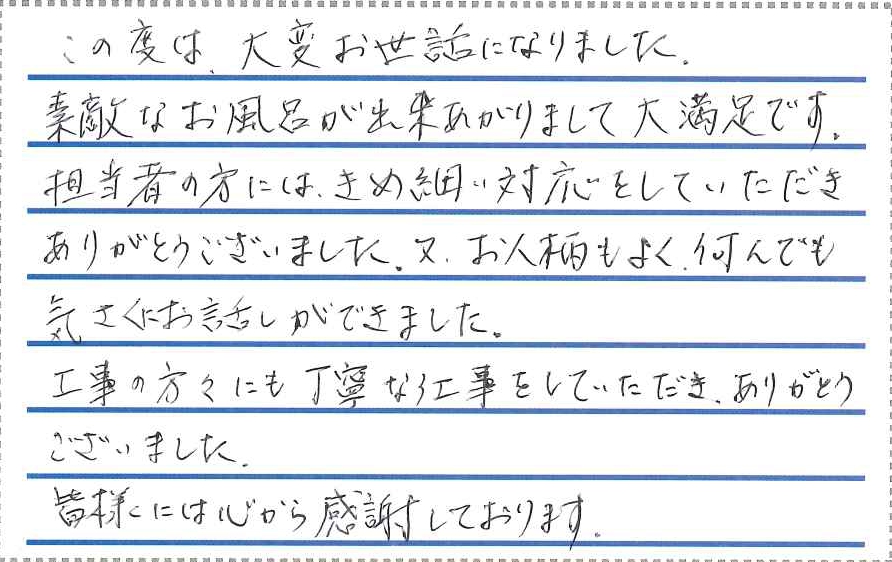 この度は、大変お世話になりました。
素敵なお風呂が出来あがりまして大満足です。
担当者の方には、きめ細い対応をしていただき
ありがとうございました。又、お人柄もよく、何んでも
気さくにお話しができました。
工事の方々にも丁寧な工事をしていただき、ありがとう
ございました。
皆様には心から感謝しております。